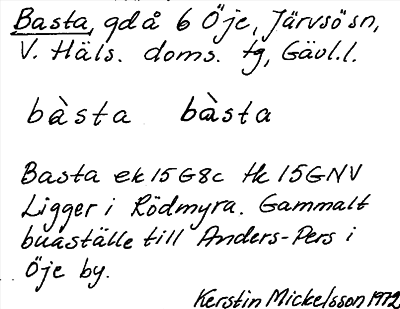 Basta, gdå 6 Öje, Järvsö sn,
V. Häls. doms. tg, Gävl.l.
bàsta bàsta
Basta ek 15G8c tk 15GNV
Ligger i Rödmyra. Gammalt
buaställe till Anders-Pers i
Öje by.
Kerstin Mickelsson 1972